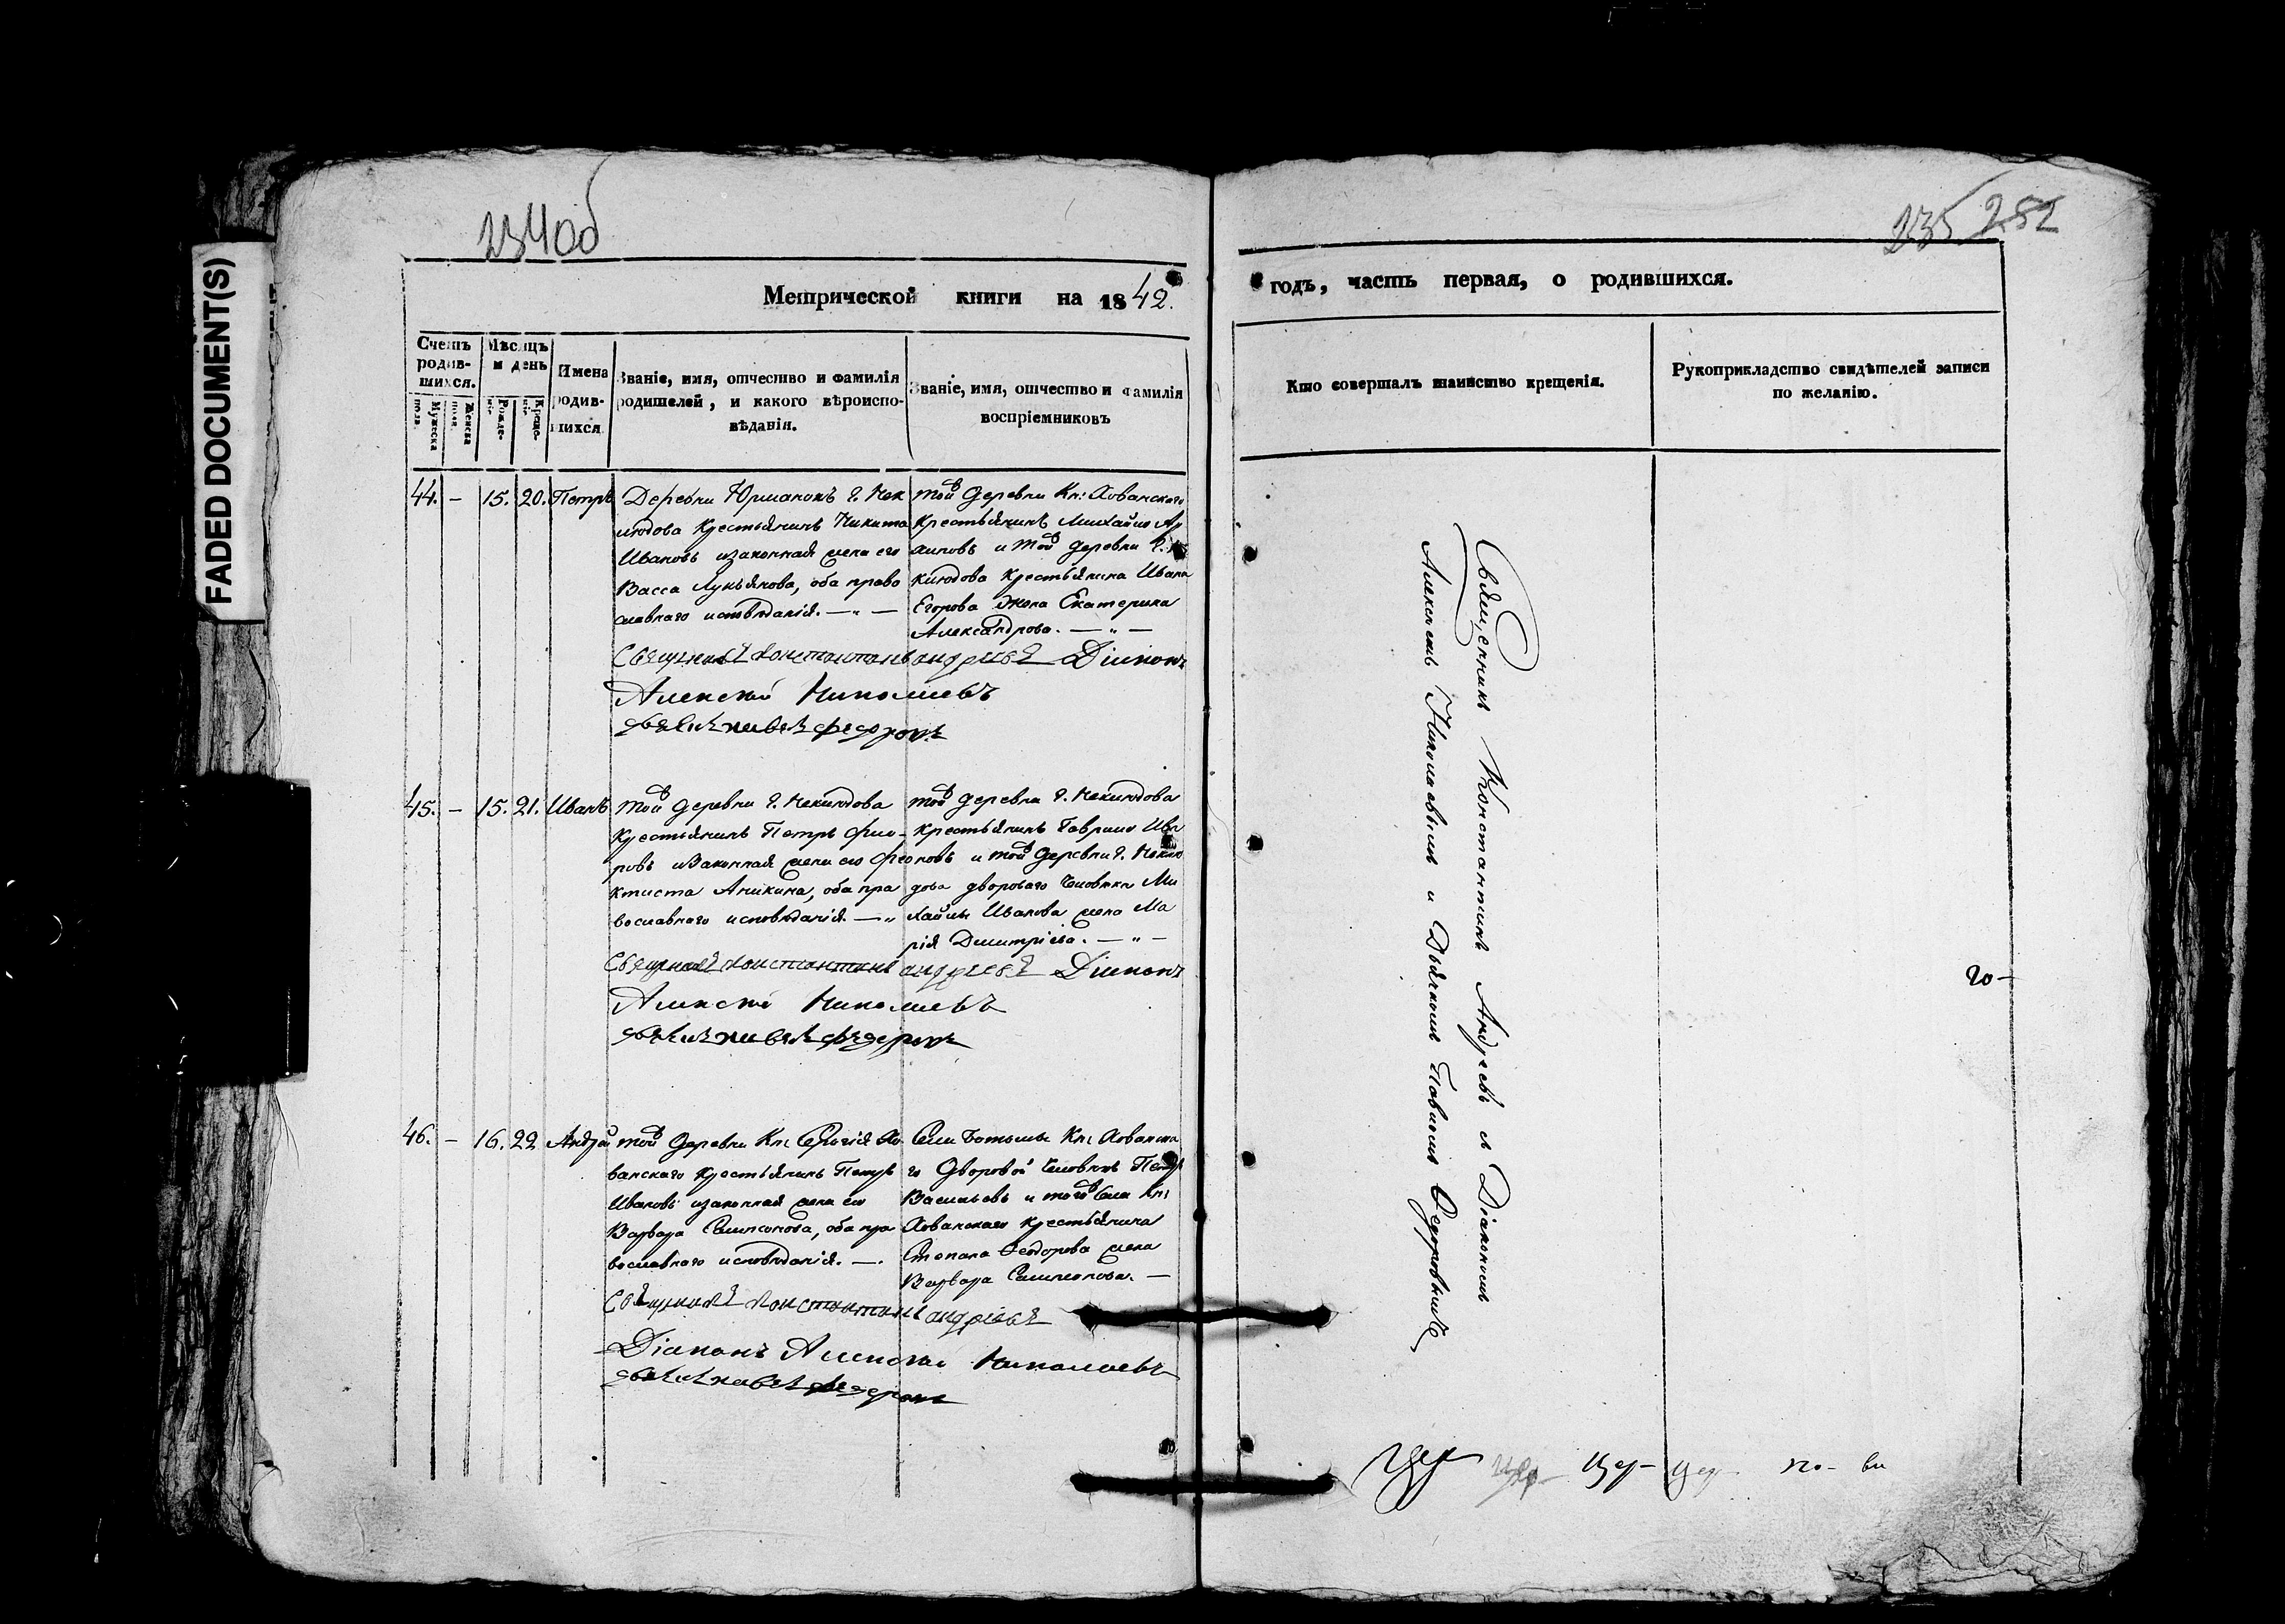 FADED DOCUMENT(S)
234об
235 252
Метрической книги на 1842.
годъ, часть первая, о родившихся.
Счетъ родив-
шихся.
Мужеска полъ.
Женска полъ.
Мѣсяцъ и день
Рожде-
нiе
Креще-
нiе
Имена
родив-
шихся
Званіе, имя, отчество и фамилія
родителей, и какого вѣроиспо-
вѣданія.
Званіе, имя, отчество и фамилія
воспріемниковъ
Кто совершалъ таинство крещенія.
Рукоприкладство свидѣтелей записи
по желанію.
44. — 15. 20. Петръ
Деревни Юрманокъ г. Нек
людова Крестьянинъ Никита
Ивановъ и законная жена его
Васса Лукьянова, оба право
славнаго исповѣданія. — „ —
той деревни Кн: Хованскаго
Крестьянинъ Михайло Ар
хиповъ и той деревни г. Не
клюдова Крестьянина Ивана
Егорова жена Екатерина
Александрова. — „ —
Священникъ Константинъ Андреевъ Діаконъ
Алексѣй Николаевъ
дьячикъ Павелъ Федоровъ
45. — 15. 21. Иванъ
той деревни г. Неклюдова
Крестьянинъ Петръ Фио-
ровъ и законная жена его Фео
ктиста Аникина, оба пра
вославнаго исповѣданія. — „
той деревни г. Неклюдова
Крестьянинъ Гаврило Ива
новъ и той деревни г. Неклю
дова двороваго человѣка Ми
хайлы Иванова жена Ма
рія Дмитріева. — „ —
Священникъ Константинъ Андреевъ Діаконъ
Алексѣй Николаевъ
дьячикъ Павелъ Федоровъ
46. — 16. 22 Андрей
той деревни Кн: Сергія Хо
ванскаго Крестьянинъ Петръ
Ивановъ и законная жена его
Варвара Сампсонова, оба пра
вославнаго исповѣданія. —.
Села Ботьмы Кн: Хованска
го Дворовой человѣкъ Петръ
Васильевъ и того села Кн:
Хованскаго Крестьянина
Степана Ѳеодорова жена
Варвара Сампсонова. —
Священникъ Константинъ Андреевъ
Діаконъ Алексѣй Николаевъ
дьячикъ Павелъ Федоровъ
Священникъ Константинъ Андреевъ съ Діакономъ
Алексѣемъ Николаевымъ и Дьячкомъ Павломъ Ѳедоровымъ
го —
цер — цер — по — ви